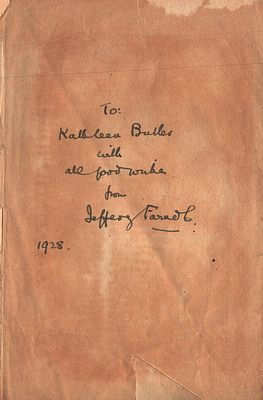 To:
Kathleen Butler
with
all good wishes
from
Jeffery Farnol.
1928.